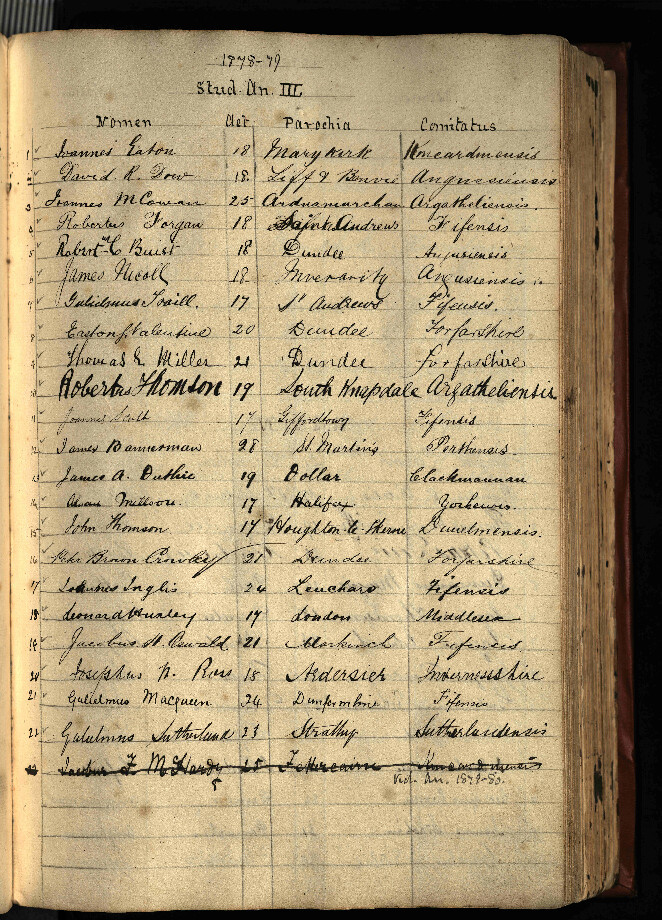 1878-79
Stud. An. III
Nomen Aet. Parochia Comitatus
1 Ioannes Eaton 18 Marykirk Kincardinensis
2 David R. Dow 18 Liff & Benvie Angusiensis
3 Ioannes McCowan 25 Ardnamurchan Argatheliensis.
4 Robertus Forgan 18 Saint Andrews Fifensis
5 Robert C Buist 18 Dundee Angusiensis
6 James Nicoll 18 Inverarity Angusiensis
7 Gulielmus Traill. 17 St Andrews Fifensis.
8 Easton Valentine 20 Dundee Forfarshire
9 Thomas E Miller 21 Dundee Forfarshire
10 Robertus Thomson 19 South Knapdale Argatheliensis
11 Joannes Scott 17 Giffordtown Fifensis
12 James Bannerman 28 St. Martin's Perthensis.
13 James A. Duthie 19 Dollar Clackmannan
14 17 Halifax
15 John Thomson 17 Houghton-le-Skerne Dunelmensis.
16 Brown 21 Dundee Forfarshire
17 Johannes Inglis 24 Leuchars Fifensis
18 Leonard Huxley 17 London Middlesex
19 Jacobus H. Oswald 21 Markinch Fifensis
20 Josephus Ross 18 Ardersier Invernessshire
21 Gulielmus Macqueen 24 Dunfermline Fifensis
22 Gulielmus Sutherland 23 Strathy Sutherlandensis
23 Jacobus F McHardy Fettercairn Kincardinensis
Vid. An. 1879-80.